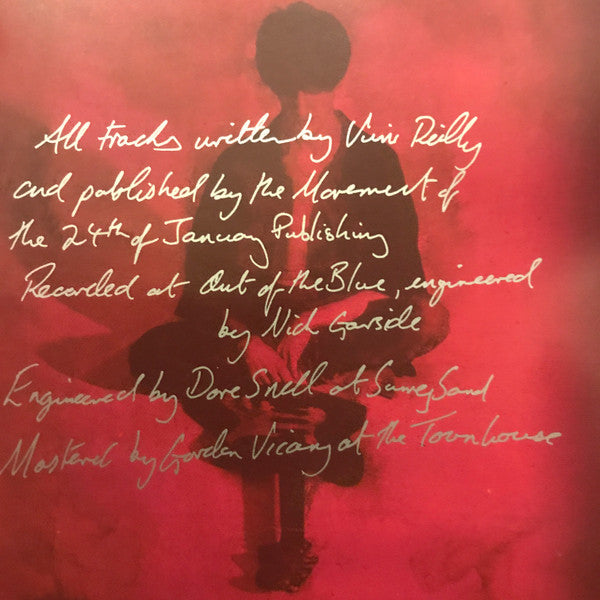 All tracks written by Vini Reilly
and published by the Movement of
the 24th of January Publishing
Recorded at Out of the Blue, engineered
by Nick Garside
Engineered by Dave Snell at Surrey Sound
Mastered by Gordon Vicary at the Townhouse